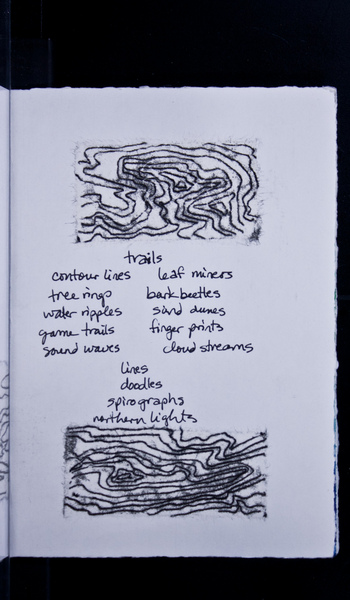 trails
contour lines leaf miners
tree rings bark beetles
water ripples sand dunes
game trails finger prints
sound waves cloud streams
lines
doodles
spirographs
northern lights